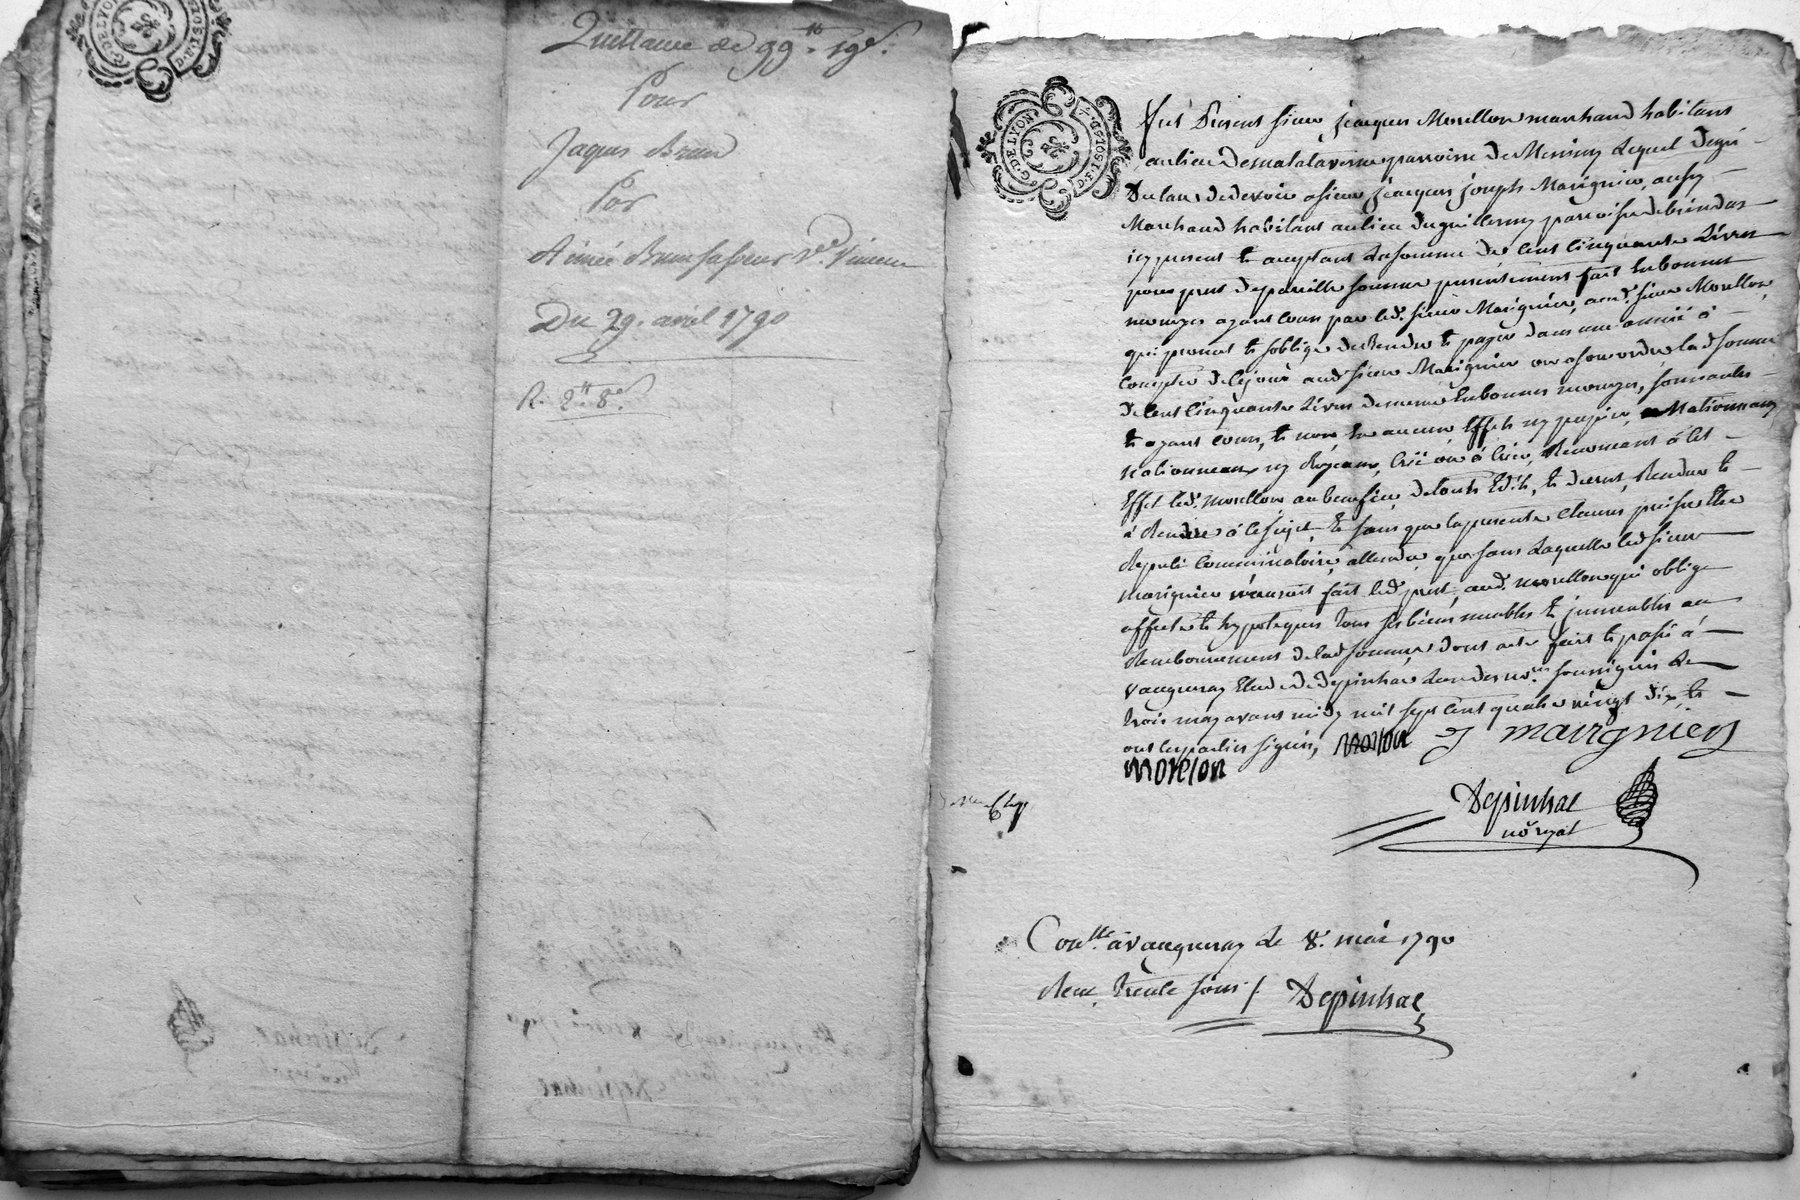 G. DE LYON
D.F. 1SOL 8D.
Quittance de 99.tt 19s.
Pour
Jaques Brun
Par
Aimée Brun sa sœur Ve. Vincent
Du 29. avril 1790
R. 2.tt 8s.
G. DE LYON
D.F. 1SOL 8D.
Fut Present sieur jacques Morellon marchand habitant
au lieu de malataverne parroisse de Messimy Lequel de gré
Declare de devoir a sieur jacques joseph Marignier, aussy
Marchand habitant au lieu du guillermy parroisse de brindas
icy present et aceptant La somme de Cent Cinquante Livres
pour pret de pareille somme presentement fait En bonnes
monoyes ayant cours par led. sieur Marignier, aud. sieur Morellon,
qui promet et s'oblige de Rendre et payer dans une année à
Compter de ce jour aud sieur Marignier ou a son ordre lad somme
de Cent Cinquante Livres de meme En bonnes monoyes, sonnantes
et ayant cours, et non En aucuns Effets ny papier Nationnaux
ny Royeaux, Créé ou à Créer, Renoncant à cet
Effet led. morellon au benefice de touts Edits, et decrets, Rendus et
à Rendre à ce sujet, Et sans que la presente Clause puisse Etre
Reputé Comminatoire, attendu que sans Laquelle led sieur
Marignier n'auroit fait led pret, aud. morellon qui oblige
affecte et hypoteque tous ses biens meubles et jmmeubles au
Remboursement de lad somme, dont acte fait et passé à
vaugneray Etude de Depinhac L'un des no.res soussignés Le
trois may avant midy mil sept Cent quatre vingt dix, et
ont les parties signés, morlon J J marignier
morelon
Depinhac
no. royal
Con.lle à vaugneray Le 8. mai 1790
Reçu trente sous /. Depinhac